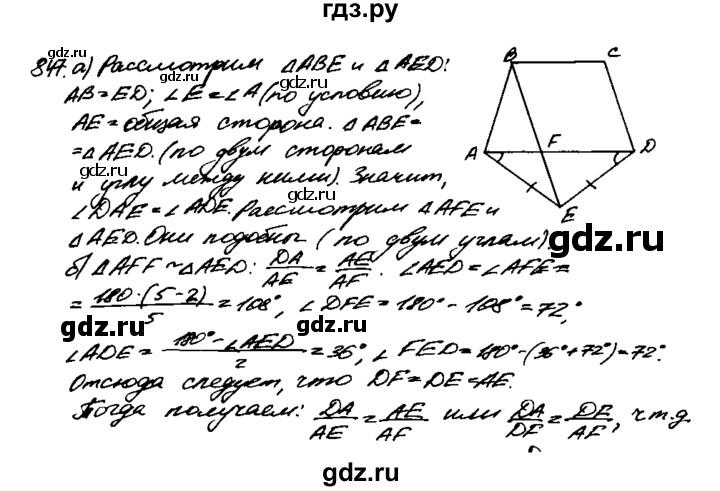 гдз.ру
847. а) Рассмотрим △ABE и △AED:
AB=ED; ∠E=∠A (по условию),
AE=общая сторона. △ABE=
=△AED. (по двум сторонам
и углу между ними). Значит,
∠DAE=∠ADE. Рассмотрим △AFE и
△AED. Они подобны (по двум углам).
б) △AFF ~ △AED: DA/AE = AE/AF. ∠AED=∠AFE=
= 180·(5-2)/5 = 108°, ∠DFE = 180° - 108° = 72°,
∠ADE = 180° - ∠AED/2 = 36°, ∠FED = 180° - (36° + 72°) = 72°.
Отсюда следует, что DF=DE=AE.
Тогда получаем: DA/AE = AE/AF или DA/DF = DF/AF, ч.т.д
B C
A F D
E
gdz.ru
gdz.ru
gdz.ru
gdz.ru
gdz.ru
gdz.ru
gdz.ru
gdz.ru
gdz.ru
gdz.ru
gdz.ru
gdz.ru